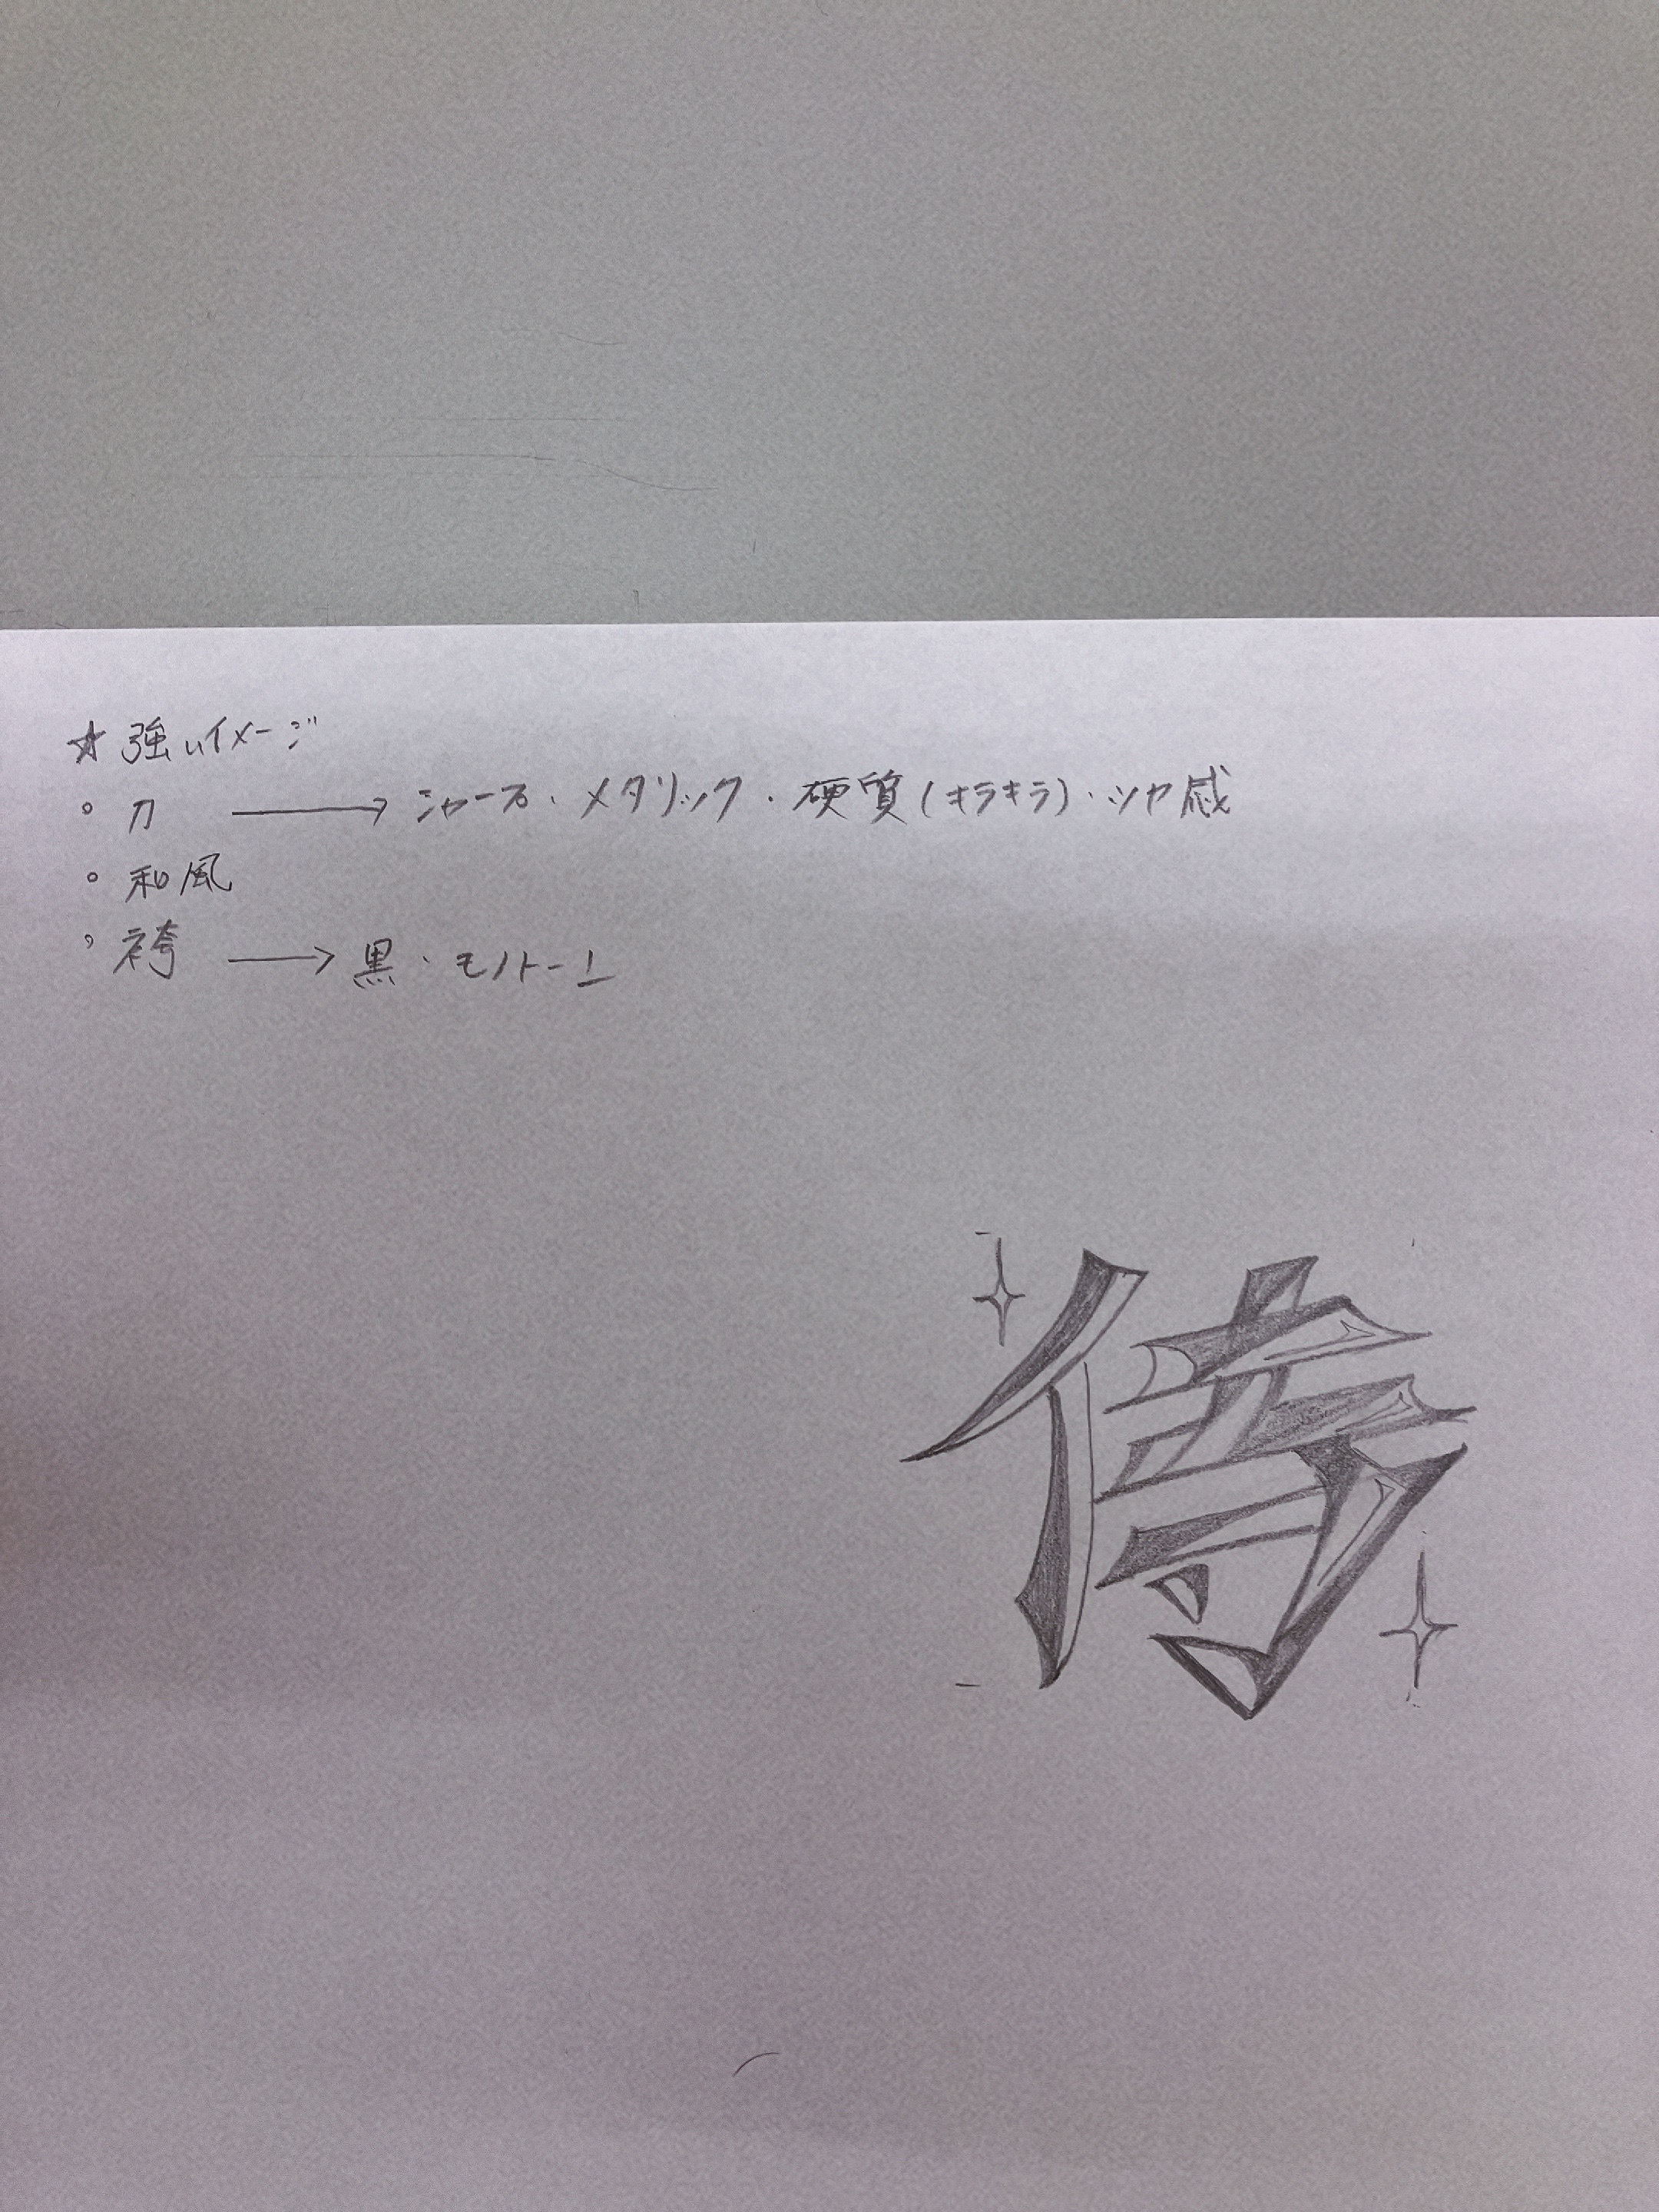 ☆強いイメージ
◦ 刀 → シャープ・メタリック・硬質(キラキラ)・ツヤ感
◦ 和風
◦ 袴 → 黒・モノトーン
侍